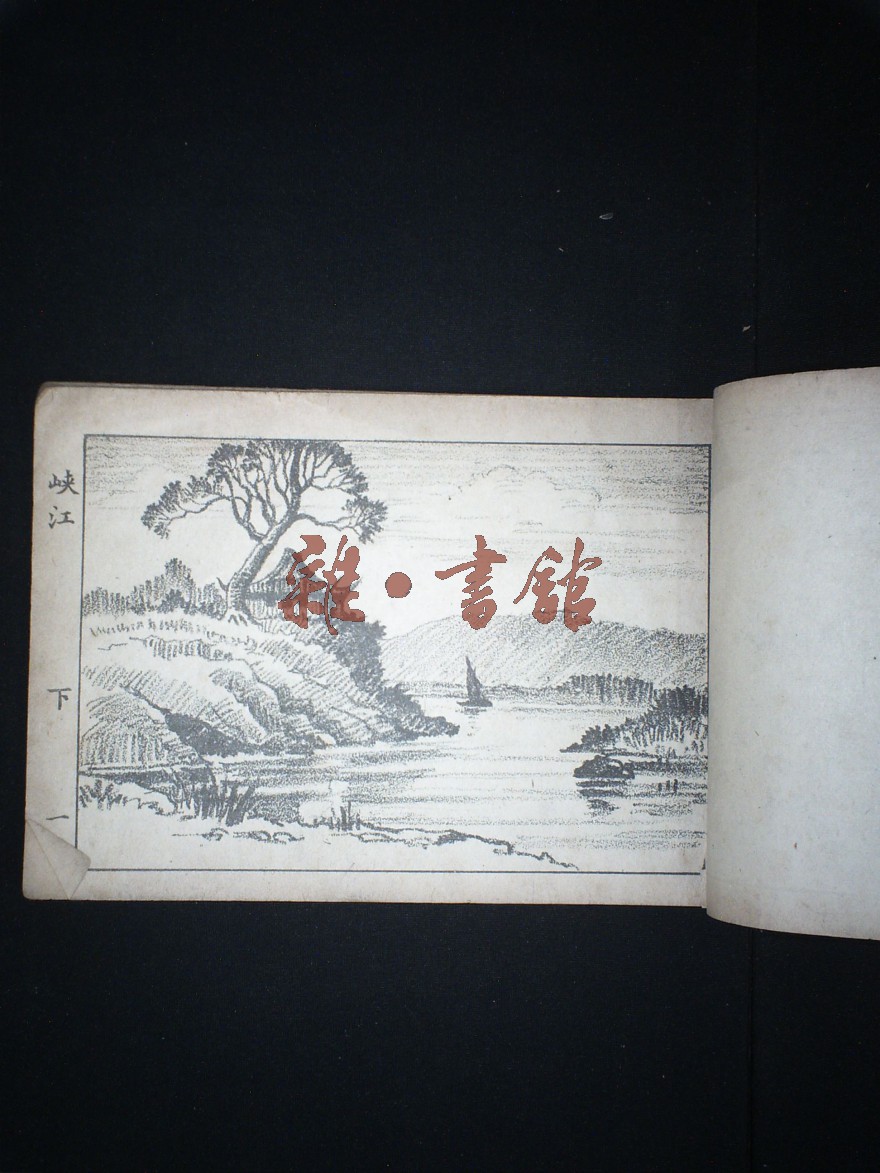 峡江
下
一
雜·書舘